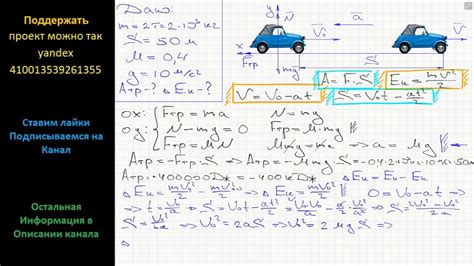 Поддержать
проект можно так
yandex
410013539261355
Ставим лайки
Подписываемся на
Канал
Остальная
Информация в
Описании канала
Дано:
m = 2т = 2·10³ кг
S = 50 м
μ = 0,4
g = 10 м/с²
Aтр - ? ΔEк - ?
N
V₀
a
V
Fтр
mg
S
A = F·S
Eк = mV²/2
V = V₀ - at
S = V₀t - at²/2
ox: Fтр = ma
oy: N - mg = 0
Fтр = μN
N = mg
Fтр = μmg
μmg = ma
a = μg
Aтр = -Fтр·S = -μmg·S = -0,4·2·10³·10·50
Aтр = -400000Дж = -400кДж
ΔEк = mV²/2 - mV₀²/2
ΔEк = mV₀²/2
0 = V₀ - at
t = V₀/a
S = V₀t - at²/2
S = V₀²/2a
V₀² = 2aS
V₀² = 2μgS